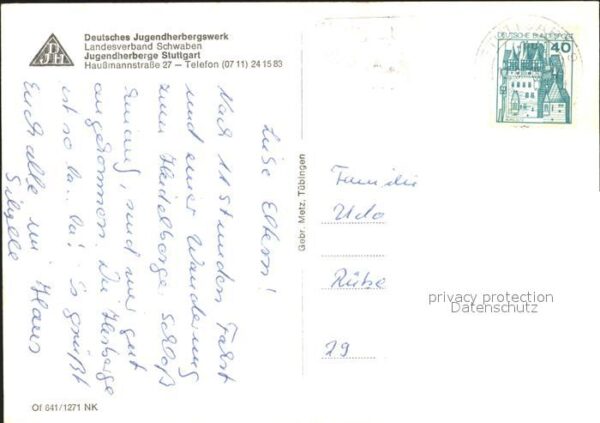 Deutsches Jugendherbergswerk
Landesverband Schwaben
Jugendherberge Stuttgart
Haußmannstraße 27 — Telefon (07 11) 24 15 83
DJH
DEUTSCHE BUNDESPOST
40
Liebe Eltern!
Nach 11 Stunden Fahrt
und einer Wanderung
zum Heidelberger Schloß
sind wir gut
angekommen. Die Herberge
ist so la-la! Es grüßt
Euch alle Klaus
Sibylle
Gebr. Metz, Tübingen
Familie
Udo
29
privacy protection
Datenschutz
Of 641/1271 NK